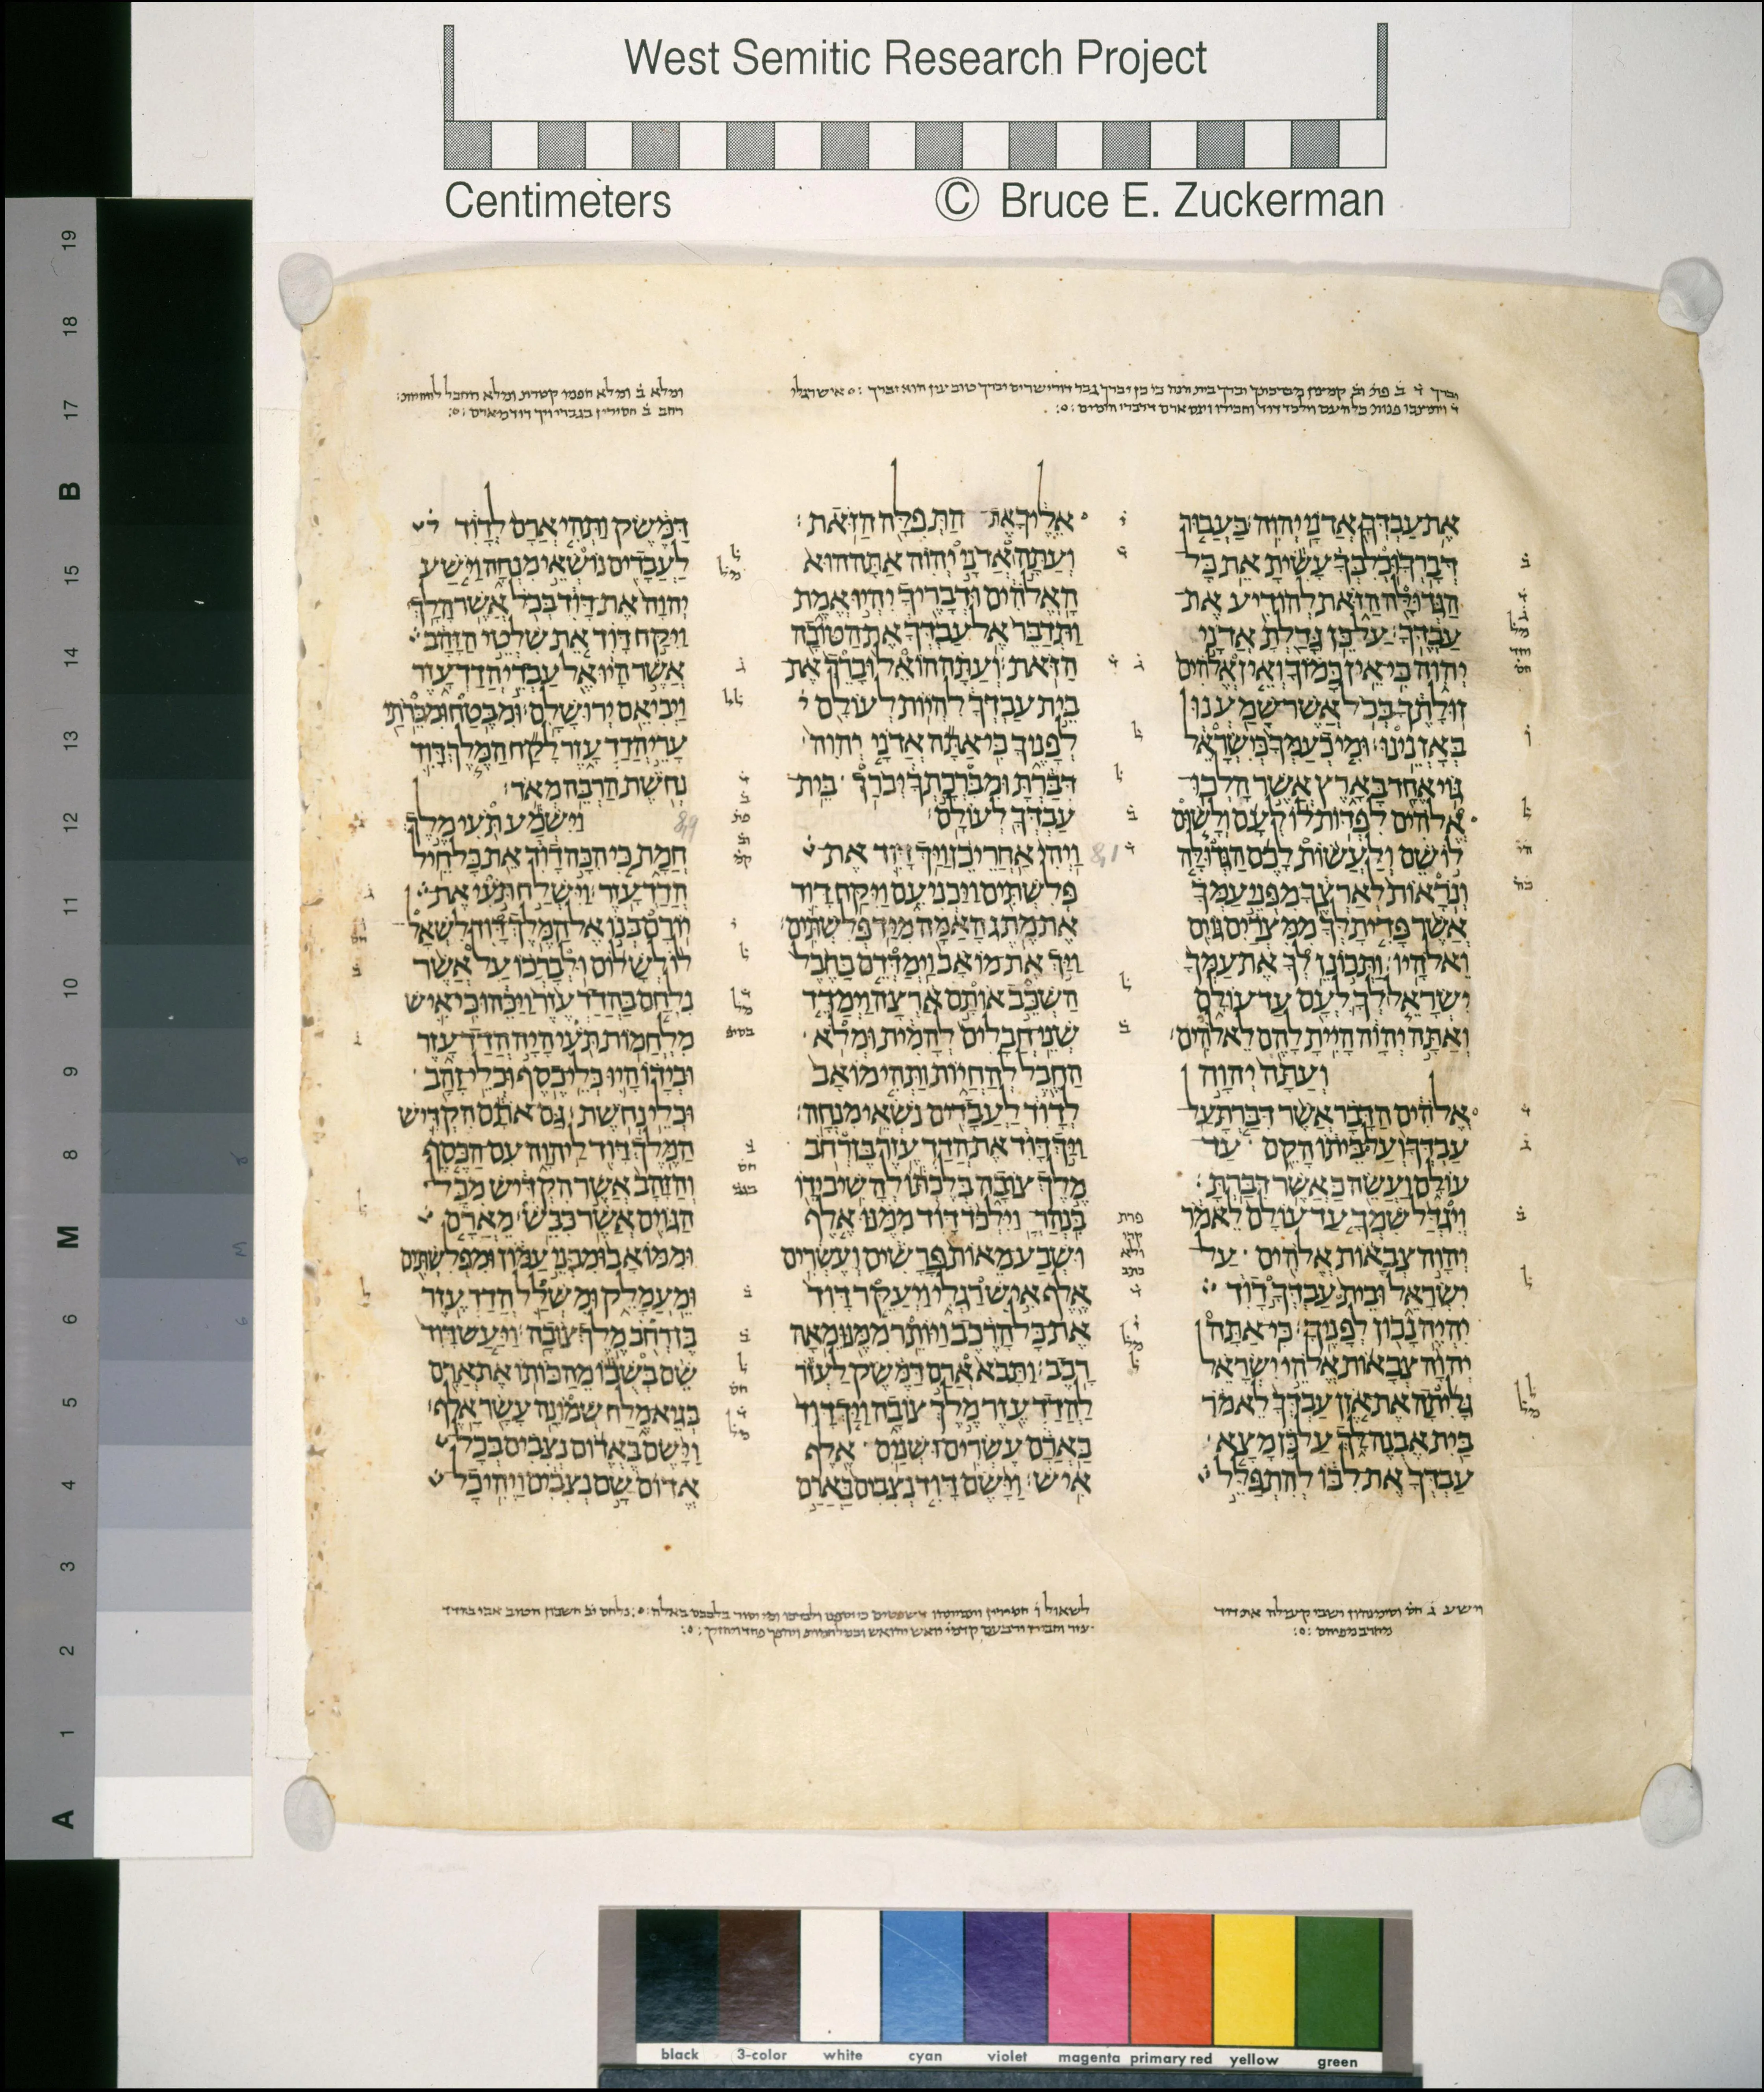 West Semitic Research Project
Centimeters © Bruce E. Zuckerman
את עבדך אדני יהוה בעבור
דברך וכלבך עשית את כל
הגדולה הזאת להודיע את
עבדך על כן גדלת אדני
יהוה כי אין כמוך ואין אלהים
זולתך בכל אשר שמענו
באזנינו ומי כעמך כישראל
גוי אחד בארץ אשר הלכו
אלהים לפדות לו לעם ולשום
לו שם ולעשות לכם הגדולה
ונראות לארצך מפני עמך
אשר פדית לך ממצרים גוים
ואלהיו ותכונן לך את עמך
ישראל לך לעם עד עולם
ואתה יהוה היית להם לאלהים
ועתה יהוה
אלהים הדבר אשר דברת על
עבדך ועל ביתו הקם עד
עולם ועשה כאשר דברת
ויגדל שמך עד עולם לאמר
יהוה צבאות אלהים על
ישראל ובית עבדך דוד
יהיה נכון לפניך כי אתה
יהוה צבאות אלהי ישראל
גליתה את אזן עבדך לאמר
בית אבנה לך על כן מצא
עבדך את לבו להתפלל
אליך את התפלה הזאת
ועתה אדני יהוה אתה הוא
האלהים ודבריך יהיו אמת
ותדבר אל עבדך את הטובה
הזאת ועתה הואל וברך את
בית עבדך להיות לעולם
לפניך כי אתה אדני יהוה
דברת ומברכתך יברך בית
עבדך לעולם
8,1
ויהי אחרי כן ויך דוד את
פלשתים ויכניעם ויקח דוד
את מתג האמה מיד פלשתים
ויך את מואב וימדדם בחבל
השכב אותם ארצה וימדד
שני חבלים להמית ומלא
החבל להחיות ותהי מואב
לדוד לעבדים נשאי מנחה
ויך דוד את הדדעזר בן רחב
מלך צובה בלכתו להשיב ידו
בנהר וילכד דוד ממנו אלף
ושבע מאות פרשים ועשרים
אלף איש רגלי ויעקר דוד
את כל הרכב ויותר ממנו מאה
רכב ותבא ארם דמשק לעזר
להדדעזר מלך צובה ויך דוד
בארם עשרים ושנים אלף
איש וישם דוד נצבים בארם
דמשק ותהי ארם לדוד
לעבדים נושאי מנחה וישע
יהוה את דוד בכל אשר הלך
ויקח דוד את שלטי הזהב
אשר היו אל עבדי הדדעזר
ויביאם ירושלם ומבטח ומברתי
ערי הדדעזר לקח המלך דוד
נחשת הרבה מאד
8,9
וישמע תעי מלך
חמת כי הכה דוד את כל חיל
הדדעזר וישלח תעי את
יורם בנו אל המלך דוד לשאל
לו לשלום ולברכו על אשר
נלחם בהדדעזר ויכהו כי איש
מלחמות תעי היה הדדעזר
ובידו היו כלי כסף וכלי זהב
וכלי נחשת גם אתם הקדיש
המלך דוד ליהוה עם הכסף
והזהב אשר הקדיש מכל
הגוים אשר כבש מארם
וממואב ומבני עמון ומפלשתים
ומעמלק ומשלל הדדעזר
בן רחב מלך צובה ויעש דוד
שם בשבו מהכותו את ארם
בגיא מלח שמונה עשר אלף
וישם באדום נצבים בכל
אדום שם נצבים ויהי כל
19
18
17
B
15
14
13
12
11
10
9
8
M
6
5
4
3
2
1
A
black 3-color white cyan violet magenta primary red yellow green